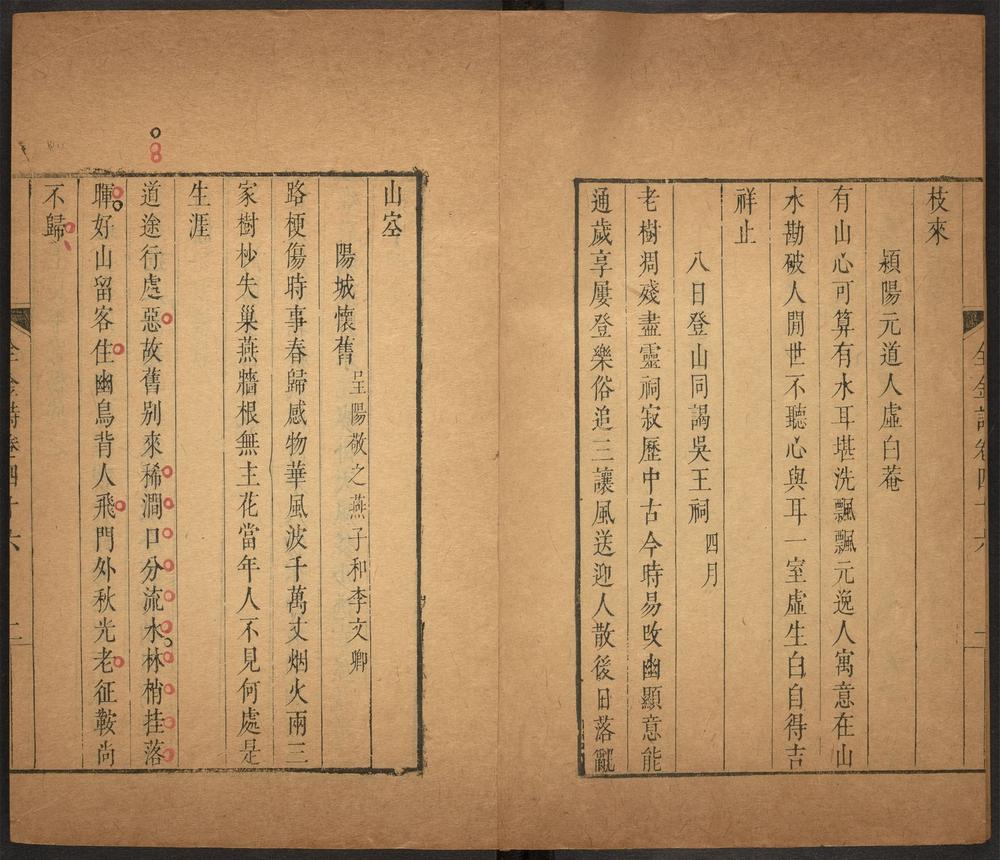 枝來
潁陽元道人虛白菴
有山心可算有水耳堪洗飄飄元逸人寓意在山
水勘破人閒世不聽心與耳一室虛生白自得吉
祥止
八日登山同謁吳王祠四月
老樹凋殘盡靈祠寂歷中古今時易攺幽顯意能
通歲享屢登樂俗追三讓風送迎人散後日落亂
山空
陽城懷舊呈陽敬之燕子和李文卿
路梗傷時事春歸感物華風波千萬丈烟火兩三
家樹杪失巢燕牆根無主花當年人不見何處是
生涯
道途行處惡故舊別來稀澗口分流水林梢挂落
暉好山留客住幽鳥背人飛門外秋光老征鞍尚
不歸
全金詩卷四十六
二